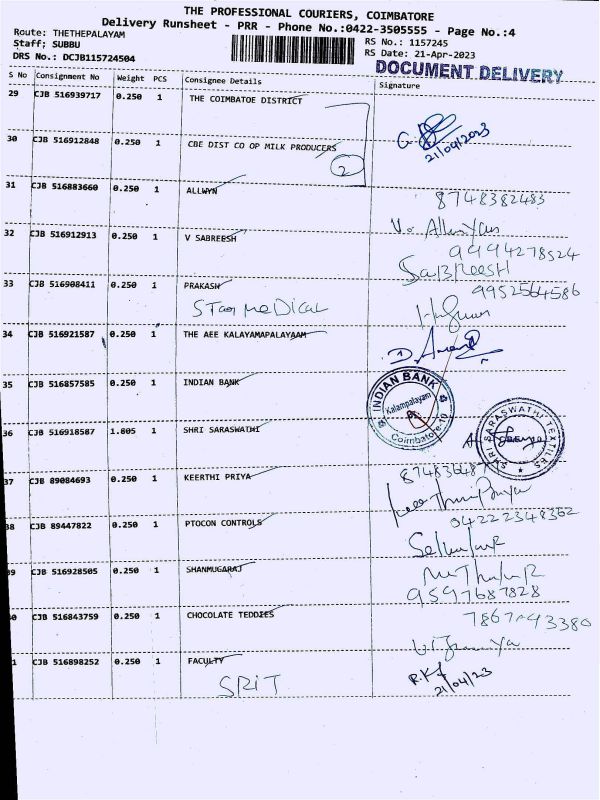 THE PROFESSIONAL COURIERS, COIMBATORE
Delivery Runsheet - PRR - Phone No.:0422-3505555 - Page No.:4
Route: THETHEPALAYAM
Staff; SUBBU
DRS No.: DCJB115724504
RS No.: 1157245
RS Date: 21-Apr-2023
DOCUMENT DELIVERY
S No Consignment No Weight PCS Consignee Details Signature
29 CJB 516939717 0.250 1 THE COIMBATOE DISTRICT
21/04/2023
30 CJB 516912848 0.250 1 CBE DIST CO OP MILK PRODUCERS
2
31 CJB 516883660 0.250 1 ALLWYN
8748382483
32 CJB 516912913 0.250 1 V SABREESH
9994278524
SABREESH
33 CJB 516908411 0.250 1 PRAKASH
9952564586
STAR MEDICAL
34 CJB 516921587 0.250 1 THE AEE KALAYAMAPALAYAAM
D. Anand
35 CJB 516857585 0.250 1 INDIAN BANK
INDIAN BANK
Kalampalayam
Br.
Coimbatore-10
36 CJB 516918587 1.805 1 SHRI SARASWATHI
SARASWATHI TEXTILES
37 CJB 89084693 0.250 1 KEERTHI PRIYA
Keerthi Priya
38 CJB 89447822 0.250 1 PTOCON CONTROLS
04222348362
Selvakumar
39 CJB 516928505 0.250 1 SHANMUGARAJ
9597687828
0 CJB 516843759 0.250 1 CHOCOLATE TEDDIES
1 CJB 516898252 0.250 1 FACULTY
SRIT
21/04/23